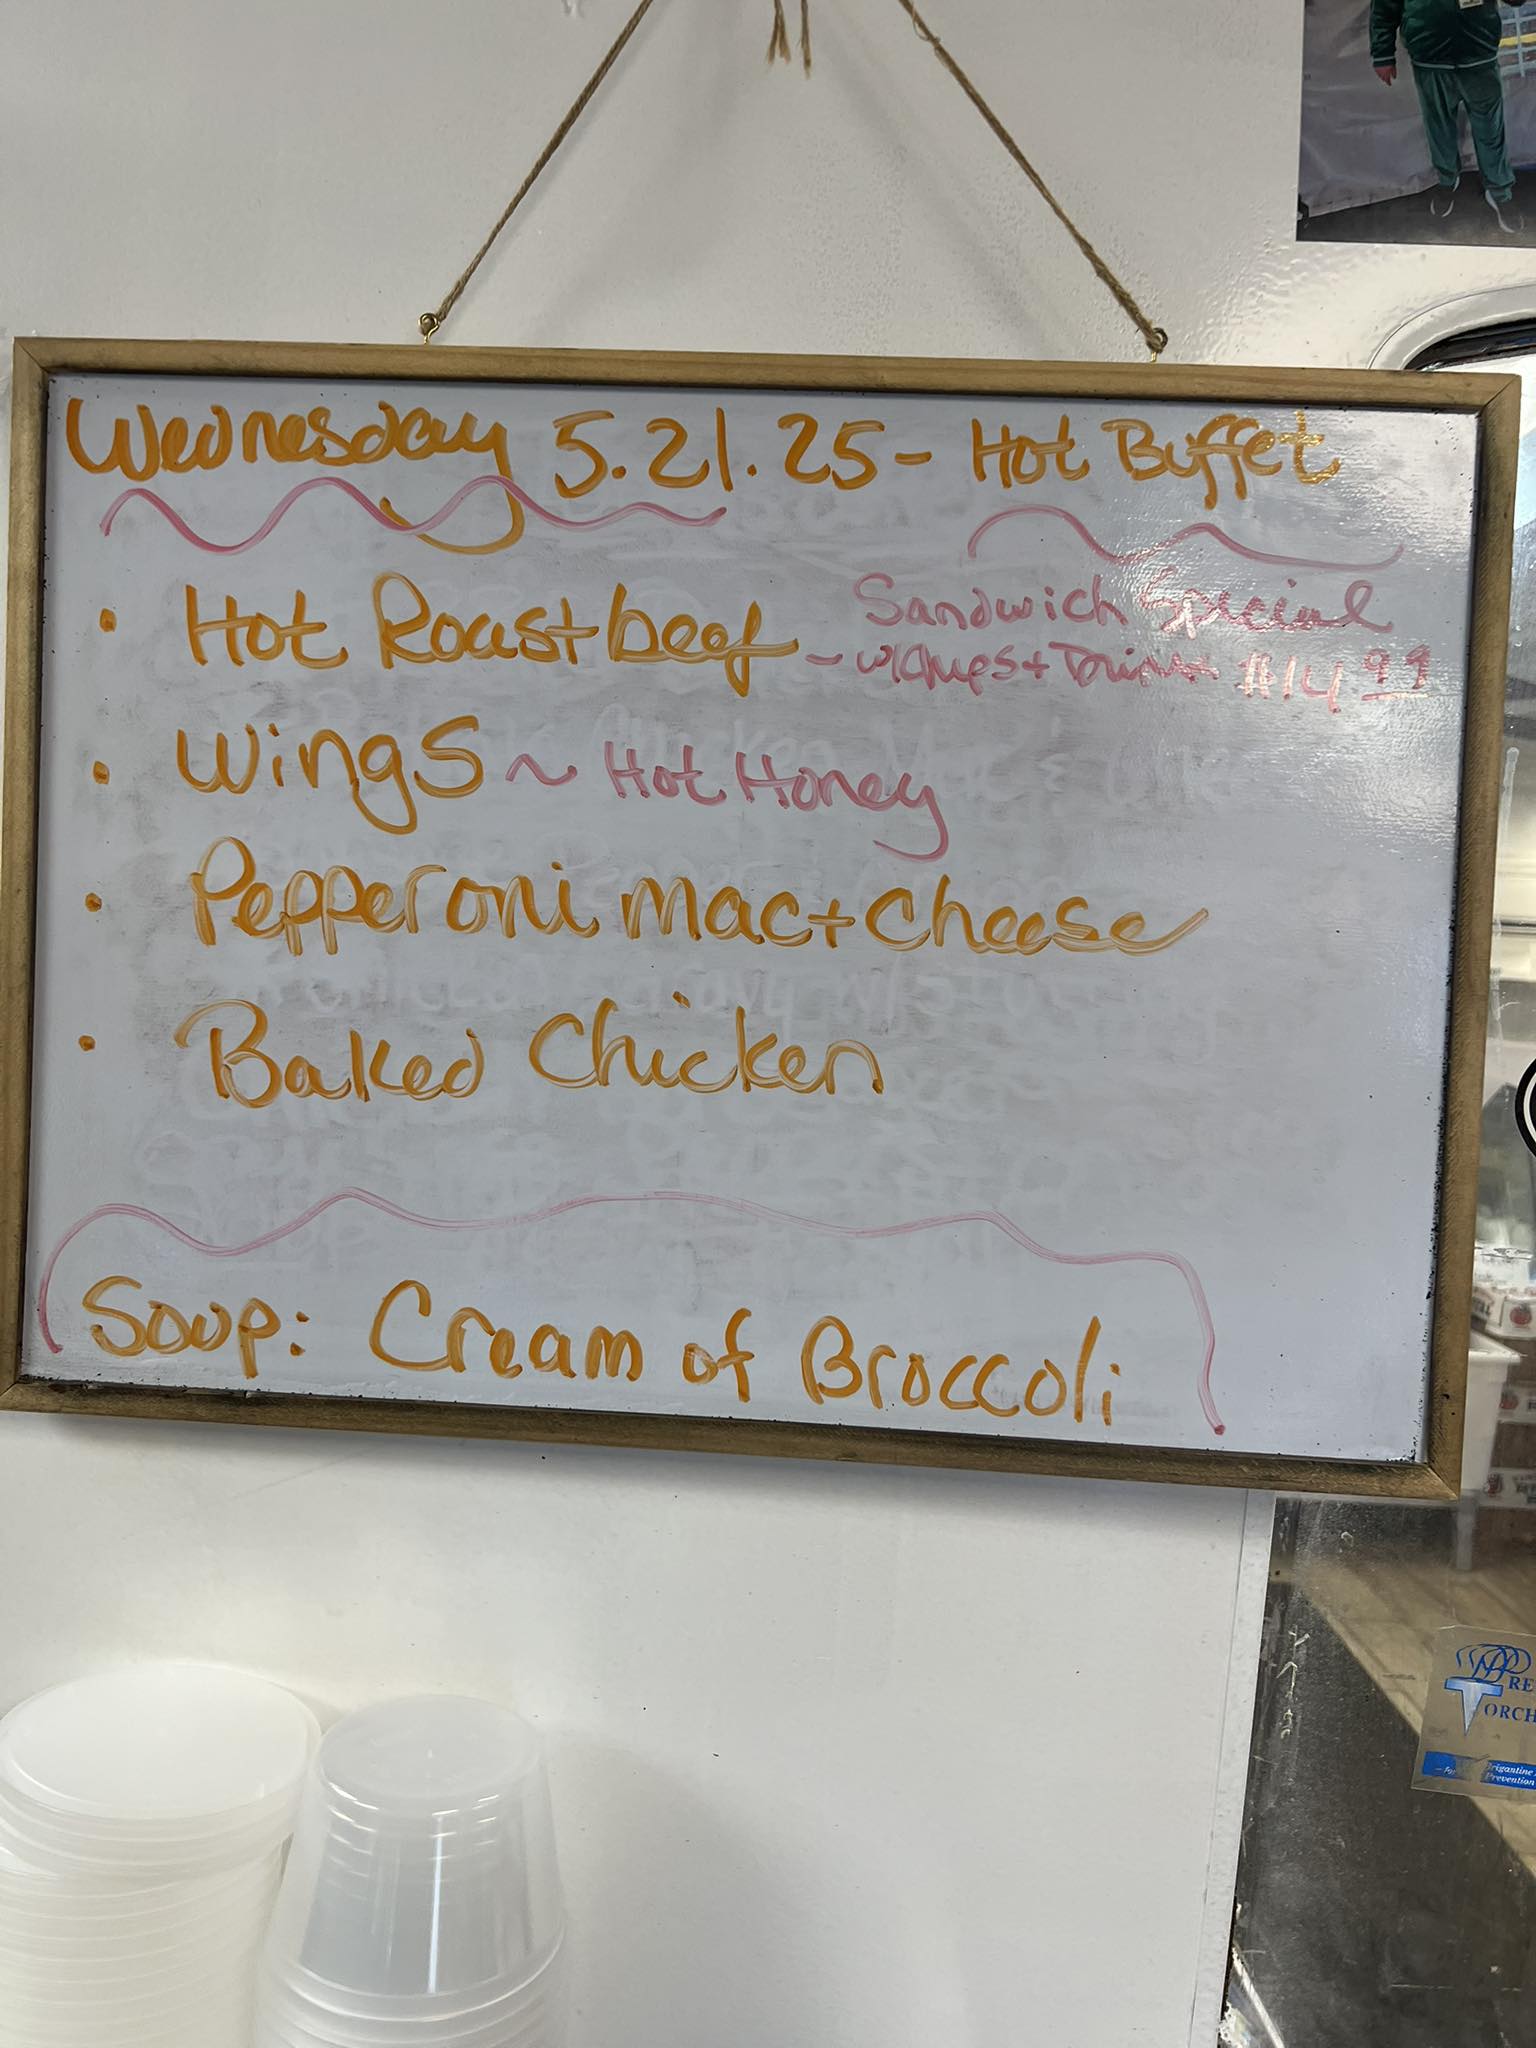 Wednesday 5.21.25 - Hot Buffet
• Hot Roastbeef - Sandwich Special
w/Chips + Drink $14.99
• Wings ~ Hot Honey
• Pepperoni Mac + Cheese
• Baked Chicken
Soup: Cream of Broccoli
RE
TORCH
Brigantine
Prevention